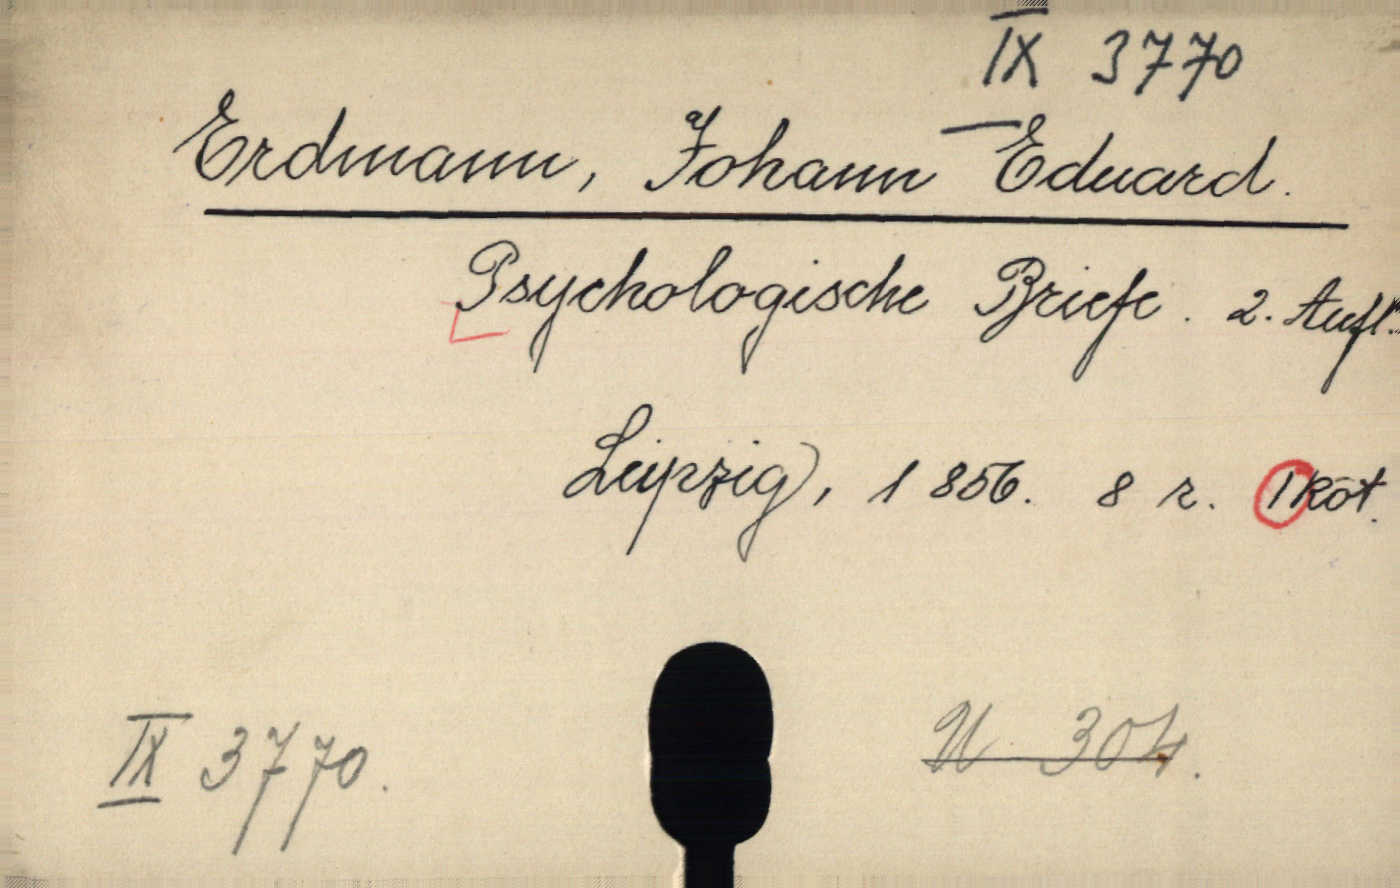 IX 3770
Erdmann, Johann Eduard.
Psychologische Briefe. 2. Aufl.
Leipzig, 1856. 8 r. 1 köt.
IX 3770.
U 304.